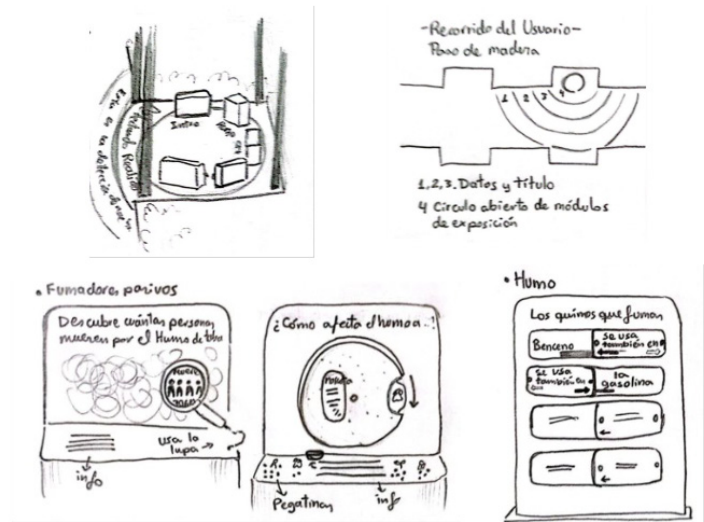 -Recorrido del Usuario-
Paso de madera
1 2 3 4
1,2,3. Datos y título
4 Círculo abierto de módulos
de exposición
Intro
• Fumadores pasivos
Descubre cuántas personas
mueren por el Humo de tbco
usa la
lupa →
info
¿Cómo afecta el humo a..!
Pegatinas
info
• Humo
Los quimos que fuman
Benceno
se usa
también en
se usa
también en
la
gasolina